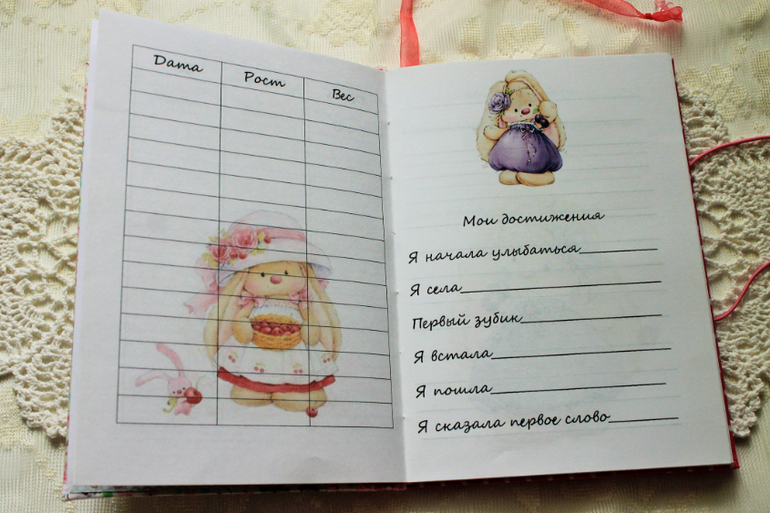 Дата Рост Вес
Мои достижения
Я начала улыбаться
Я села
Первый зубик
Я встала
Я пошла
Я сказала первое слово